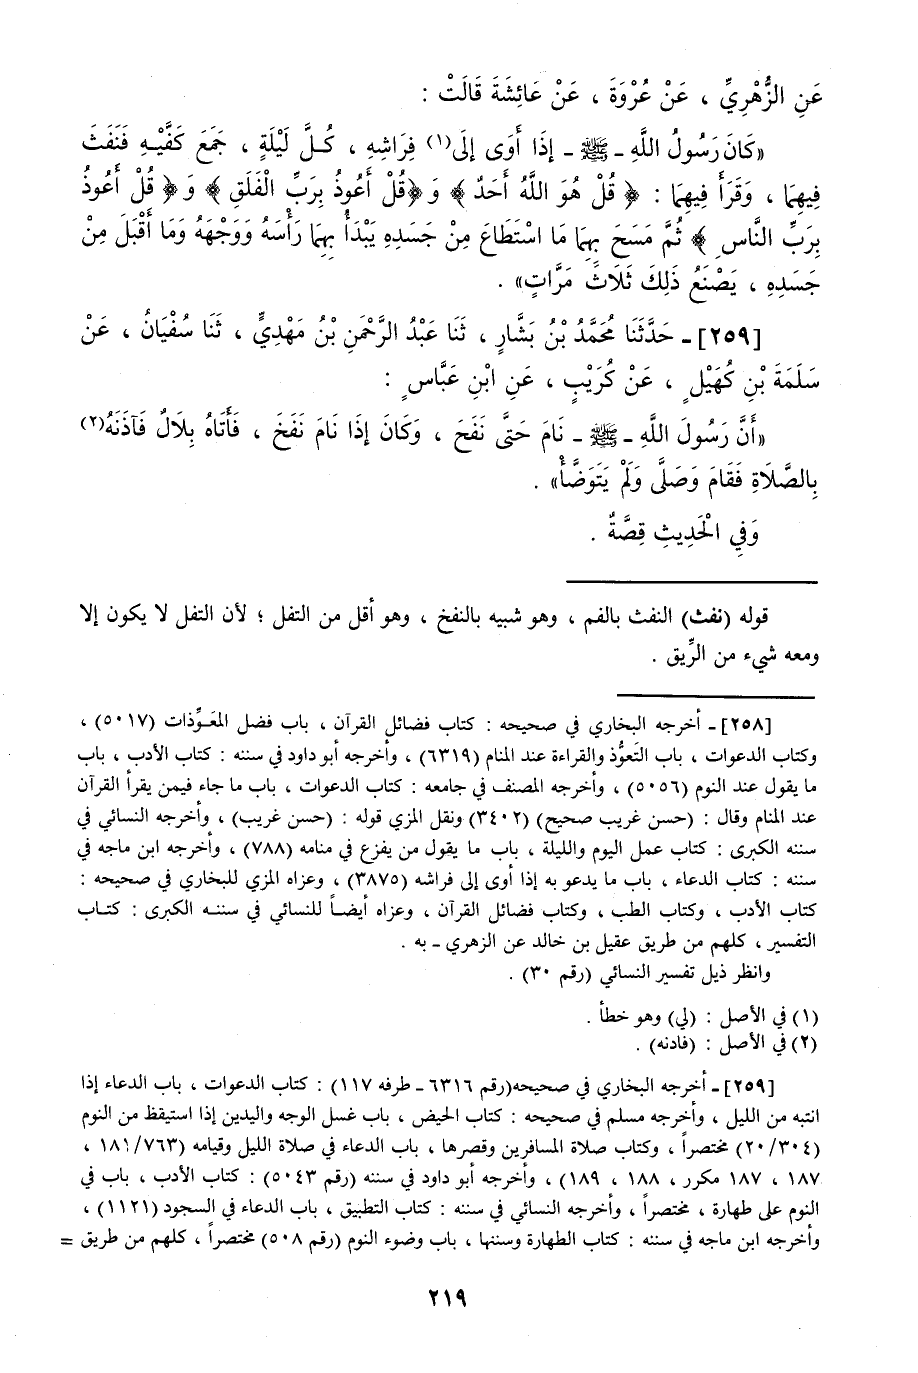 عَنِ الزُّهْرِيِّ ، عَنْ عُرْوَةَ ، عَنْ عَائِشَةَ قَالَتْ :
«كَانَ رَسُولُ اللَّهِ ـ ﷺ ـ إِذَا أَوَى إِلَى(١) فِرَاشِهِ ، كُـلَّ لَيْلَةٍ ، جَمَعَ كَفَّيْـهِ فَنَفَثَ
فِيهِمَا ، وَقَرَأَ فِيهِمَا : ﴿ قُلْ هُوَ اللَّهُ أَحَدٌ ﴾ وَ﴿قُلْ أَعُوذُ بِرَبِّ الْفَلَقِ ﴾ وَ ﴿ قُلْ أَعُوذُ
بِرَبِّ النَّاسِ ﴾ ثُمَّ مَسَحَ بِهِمَا مَا اسْتَطَاعَ مِنْ جَسَدِهِ يَبْدَأُ بِهِمَا رَأْسَهُ وَوَجْهَهُ وَمَا أَقْبَلَ مِنْ
جَسَدِهِ ، يَصْنَعُ ذَلِكَ ثَلَاثَ مَرَّاتٍ» .
[٢٥٩] ـ حَدَّثَنَا مُحَمَّدُ بْنُ بَشَّارٍ ، ثَنَا عَبْدُ الرَّحْمَنِ بْنُ مَهْدِيٍّ ، ثَنَا سُفْيَانُ ، عَنْ
سَلَمَةَ بْنِ كُهَيْلٍ ، عَنْ كُرَيْبٍ ، عَنِ ابْنِ عَبَّاسٍ :
«أَنَّ رَسُولَ اللَّهِ ـ ﷺ ـ نَامَ حَتَّى نَفَخَ ، وَكَانَ إِذَا نَامَ نَفَخَ ، فَأَتَاهُ بِلَالٌ فَآذَنَهُ(٢)
بِالصَّلَاةِ فَقَامَ وَصَلَّى وَلَمْ يَتَوَضَّأْ» .
وَفِي الْحَدِيثِ قِصَّةٌ .
قوله (نفث) النفث بالفم ، وهو شبيه بالنفخ ، وهو أقل من التفل ؛ لأن التفل لا يكون إلا
ومعه شيء من الرِّيق .
[٢٥٨] ـ أخرجه البخاري في صحيحه : كتاب فضائل القرآن ، باب فضل المعَـوِّذات (٥٠١٧) ،
وكتاب الدعوات ، باب التَعوُّذ والقراءة عند المنام (٦٣١٩) ، وأخرجه أبو داود في سننه : كتاب الأدب ، باب
ما يقول عند النوم (٥٠٥٦) ، وأخرجه المصنف في جامعه : كتاب الدعوات ، باب ما جاء فيمن يقرأ القرآن
عند المنام وقال : (حسن غريب صحيح) (٣٤٠٢) ونقل المزي قوله : (حسن غريب) ، وأخرجه النسائي في
سننه الكبرى : كتاب عمل اليوم والليلة ، باب ما يقول من يفزع في منامه (٧٨٨) ، وأخرجه ابن ماجه في
سننه : كتاب الدعاء ، باب ما يدعو به إذا أوى إلى فراشه (٣٨٧٥) ، وعزاه المزي للبخاري في صحيحه :
كتاب الأدب ، وكتاب الطب ، وكتاب فضائل القرآن ، وعزاه أيضـاً للنسائي في سننـه الكبرى : كتـاب
التفسير ، كلهم من طريق عقيل بن خالد عن الزهري ـ به .
وانظر ذيل تفسير النسائي (رقم ٣٠) .
(١) في الأصل : (لي) وهو خطأ .
(٢) في الأصل : (فادنه) .
[٢٥٩] ـ أخرجه البخاري في صحيحه(رقم ٦٣١٦ ـ طرفه ١١٧) : كتاب الدعوات ، باب الدعاء إذا
انتبه من الليل ، وأخرجه مسلم في صحيحه : كتاب الحيض ، باب غسل الوجه واليدين إذا استيقظ من النوم
(٢٠/٣٠٤) مختصراً ، وكتاب صلاة المسافرين وقصرها ، باب الدعاء في صلاة الليل وقيامه (١٨١/٧٦٣ ،
١٨٧ ، ١٨٧ مكرر ، ١٨٨ ، ١٨٩) ، وأخرجه أبو داود في سننه (رقم ٥٠٤٣) : كتاب الأدب ، باب في
النوم على طهارة ، مختصراً ، وأخرجه النسائي في سننه : كتاب التطبيق ، باب الدعاء في السجود (١١٢١) ،
وأخرجه ابن ماجه في سننه : كتاب الطهارة وسننها ، باب وضوء النوم (رقم ٥٠٨) مختصراً ، كلهم من طريق =
٢١٩